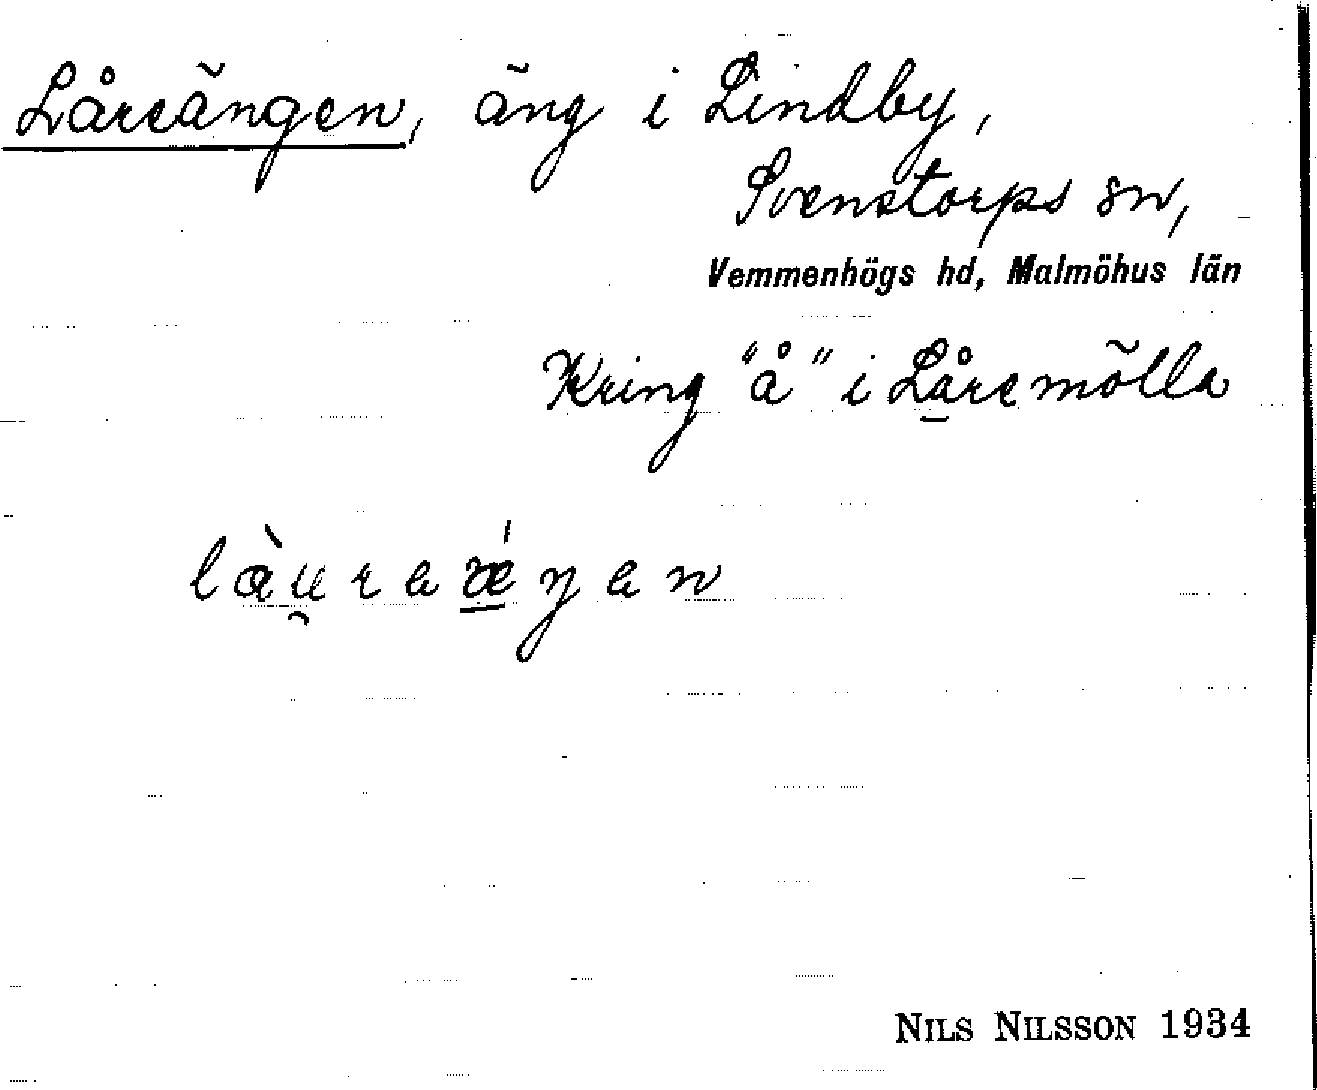 Låreängen, äng i Lindby,
Svenstorps sn,
Vemmenhögs hd, Malmöhus län
Kring "å" i Låremölla
làu̯raǽŋan
NILS NILSSON 1934